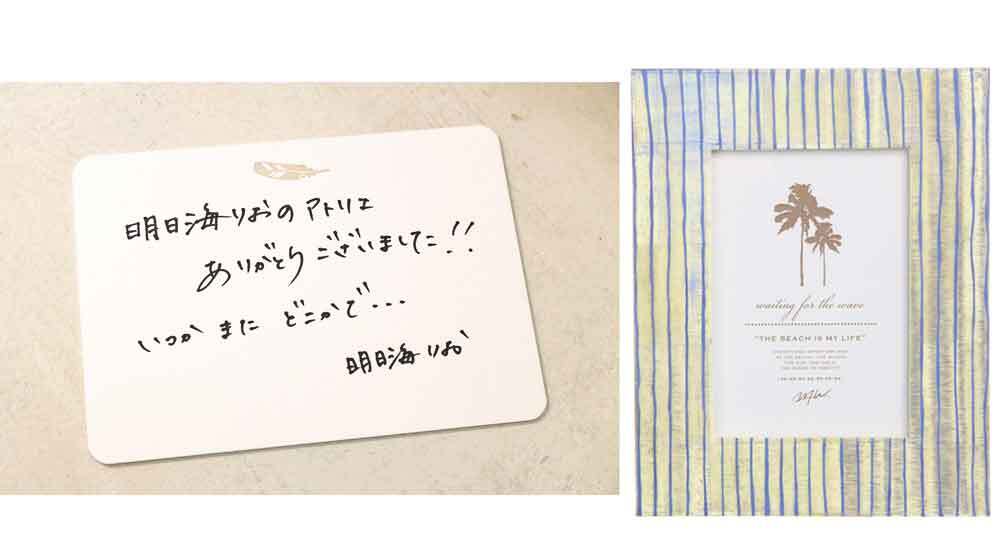 明日海りおのアトリエ
ありがとうございました!!
いつか また どこかで...
明日海りお
waiting for the wave
"THE BEACH IS MY LIFE"